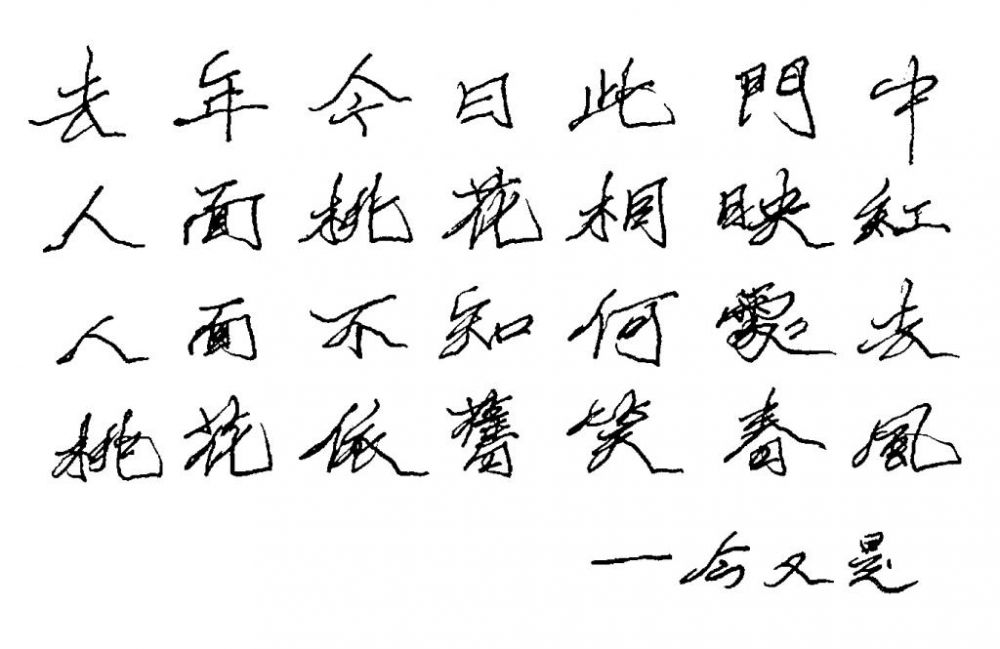 去年今日此門中
人面桃花相映紅
人面不知何處去
桃花依舊笑春風
一今又是